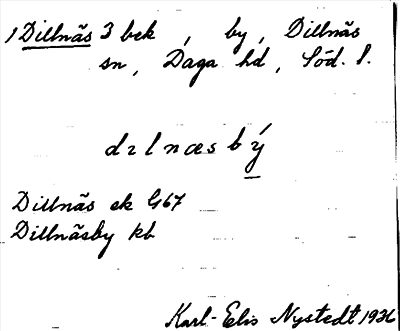 1 Dillnäs 3 bek , by, Dillnäs
sn, Daga hd, Söd. l.
dılnæsbý
Dillnäs ek G67
Dillnäsby kb
Karl-Elis Nystedt 1936